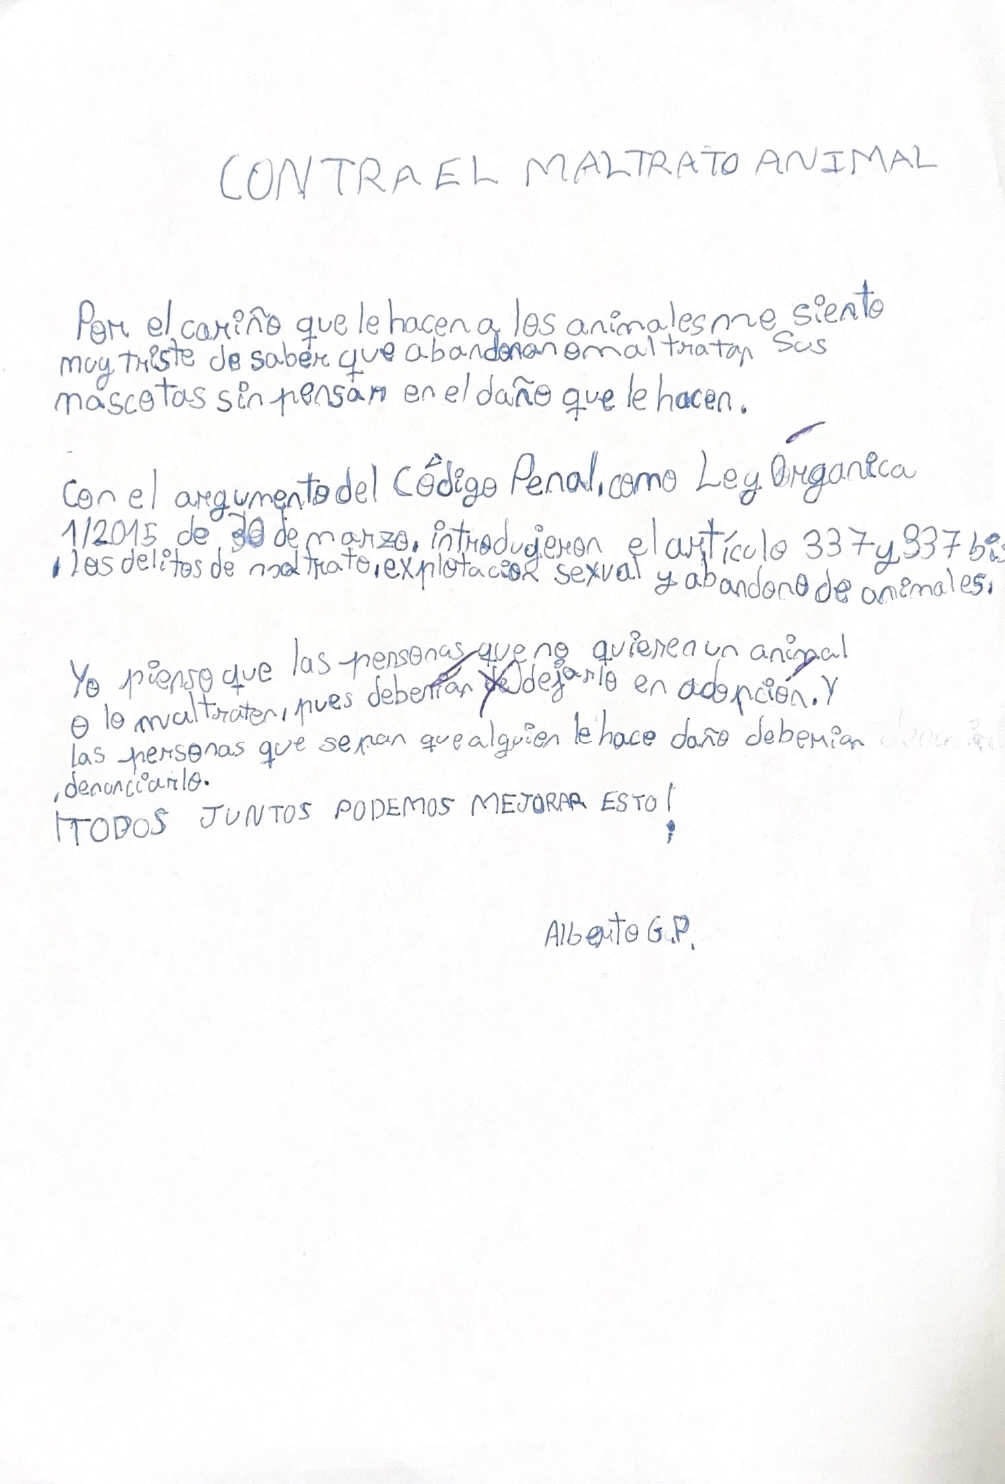 CONTRA EL MALTRATO ANIMAL
Por el cariño que le hacen a los animales me siento
muy triste de saber que abandonan o maltratan sus
mascotas sin pensar en el daño que le hacen.
Con el argumento del Código Penal, como Ley Órganica
1/2015 de 30 de marzo, introdujeron el artículo 337 y 337 bis
, los delitos de maltrato, explotacion sexual y abandono de animales.
Yo pienso que las personas que no quieren un animal
o lo maltraten, pues deberían dejarlo en adopción. Y
las personas que sepan que alguien le hace daño deberian
denunciarlo.
¡TODOS JUNTOS PODEMOS MEJORAR ESTO!
Alberto G.P.